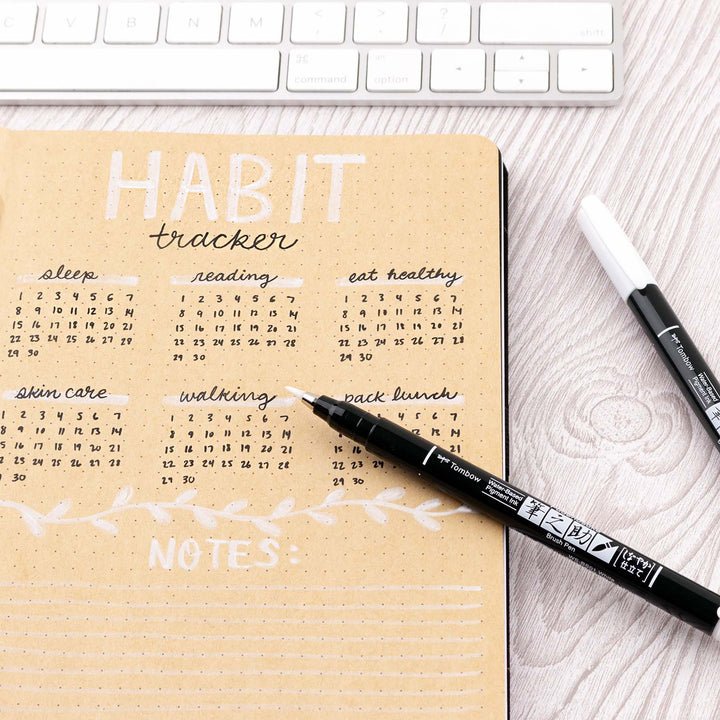 C V B N M < , > . ? / shift
⌘ command alt option
HABIT
tracker
sleep
1 2 3 4 5 6 7
8 9 10 11 12 13 14
15 16 17 18 19 20 21
22 23 24 25 26 27 28
29 30
reading
1 2 3 4 5 6 7
8 9 10 11 12 13 14
15 16 17 18 19 20 21
22 23 24 25 26 27 28
29 30
eat healthy
1 2 3 4 5 6 7
8 9 10 11 12 13 14
15 16 17 18 19 20 21
22 23 24 25 26 27 28
29 30
skin care
1 2 3 4 5 6 7
8 9 10 11 12 13 14
15 16 17 18 19 20 21
22 23 24 25 26 27 28
29 30
walking
1 2 3 4 5 6 7
8 9 10 11 12 13 14
15 16 17 18 19 20 21
22 23 24 25 26 27 28
29 30
pack lunch
3 4 5 6 7
11 12 13 14
15 19 20 21
22 23 28
29 30
NOTES:
Tombow
Water-Based
Pigment Ink
筆之助
Brush Pen
しなやか
仕立て
Tombow
Water-Based
Pigment Ink